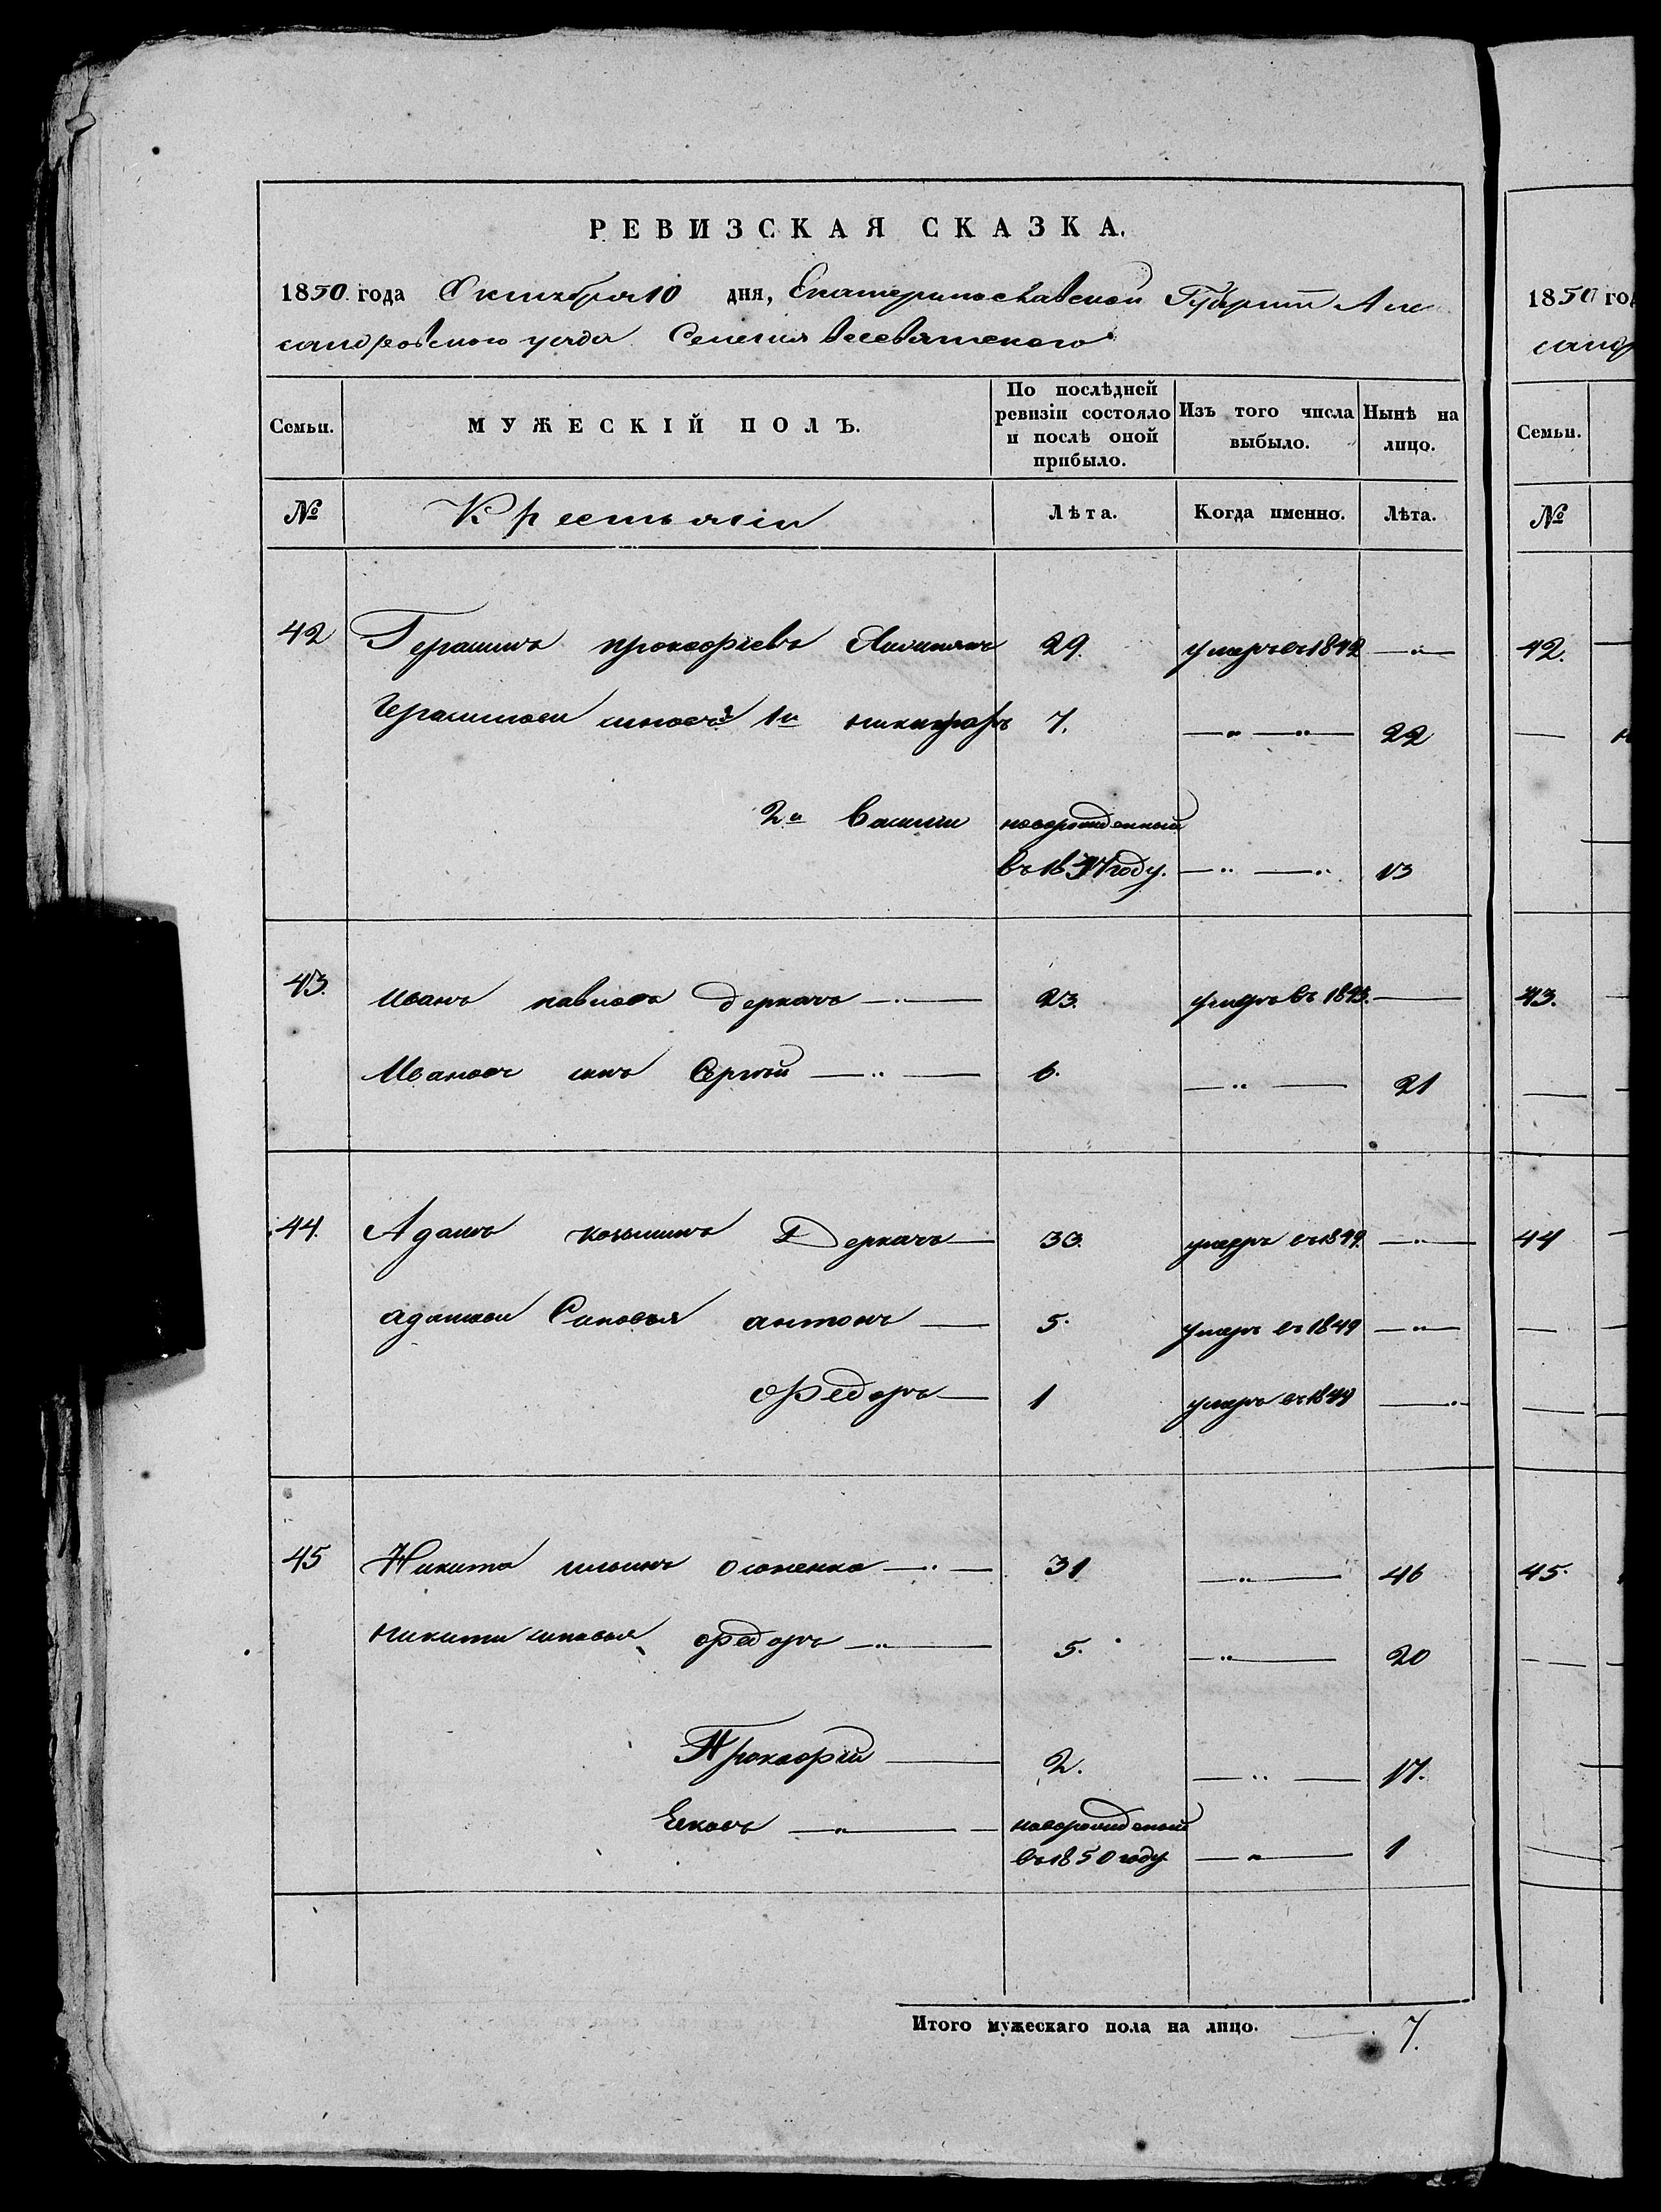 РЕВИЗСКАЯ СКАЗКА.
1850 года Октября 10 дня, Екатеринославской Губернiи Алек
сандровского уезда Селения Всесвятского
Семьи.
МУЖЕСКІЙ ПОЛЪ.
По послѣдней ревизіи состояло и послѣ оной прибыло.
Изъ того числа выбыло.
Нынѣ на лицо.
№ Крестьяни Лѣта. Когда именно. Лѣта.
42 Герасимъ прокофіевъ 29. умеръ въ 1842 — „ —
Герасимови 1й никифоръ 7. — „ — „ — 22
2й Василии новорожденный
въ 1837 году. — „ — „ 13
43. Иванъ павловъ деркачъ — „ — 23. умеръ въ 1843. —
Ивановъ синъ Сергѣй — „ — 6. — „ — 21
44. Адамъ козминъ Деркачъ — 33. умеръ въ 1849. — „ —
адамови Синовья антонъ — 5. умеръ въ 1849 — „ —
Федоръ — 1 умеръ въ 1849 — „
45 Никита ильинъ осипенко — „ — 31 — „ — 46
никити синовья федоръ — „ — 5. — „ — 20
Прокофій — 2. — „ — 17.
Яковъ — „ — новорожденый
въ 1850 году — „ — 1
Итого мужескаго пола на лицо. — 7.
1850 го
санд
Семьи.
№
42.
43.
44
45.